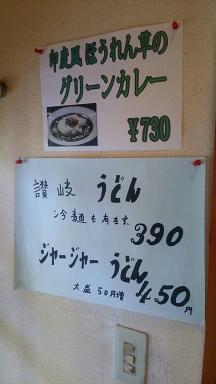 印度風ほうれん草の
グリーンカレー
¥730
讃岐 うどん
冷麦も有ます
390
ジャージャー うどん
大盛 50円増 450円